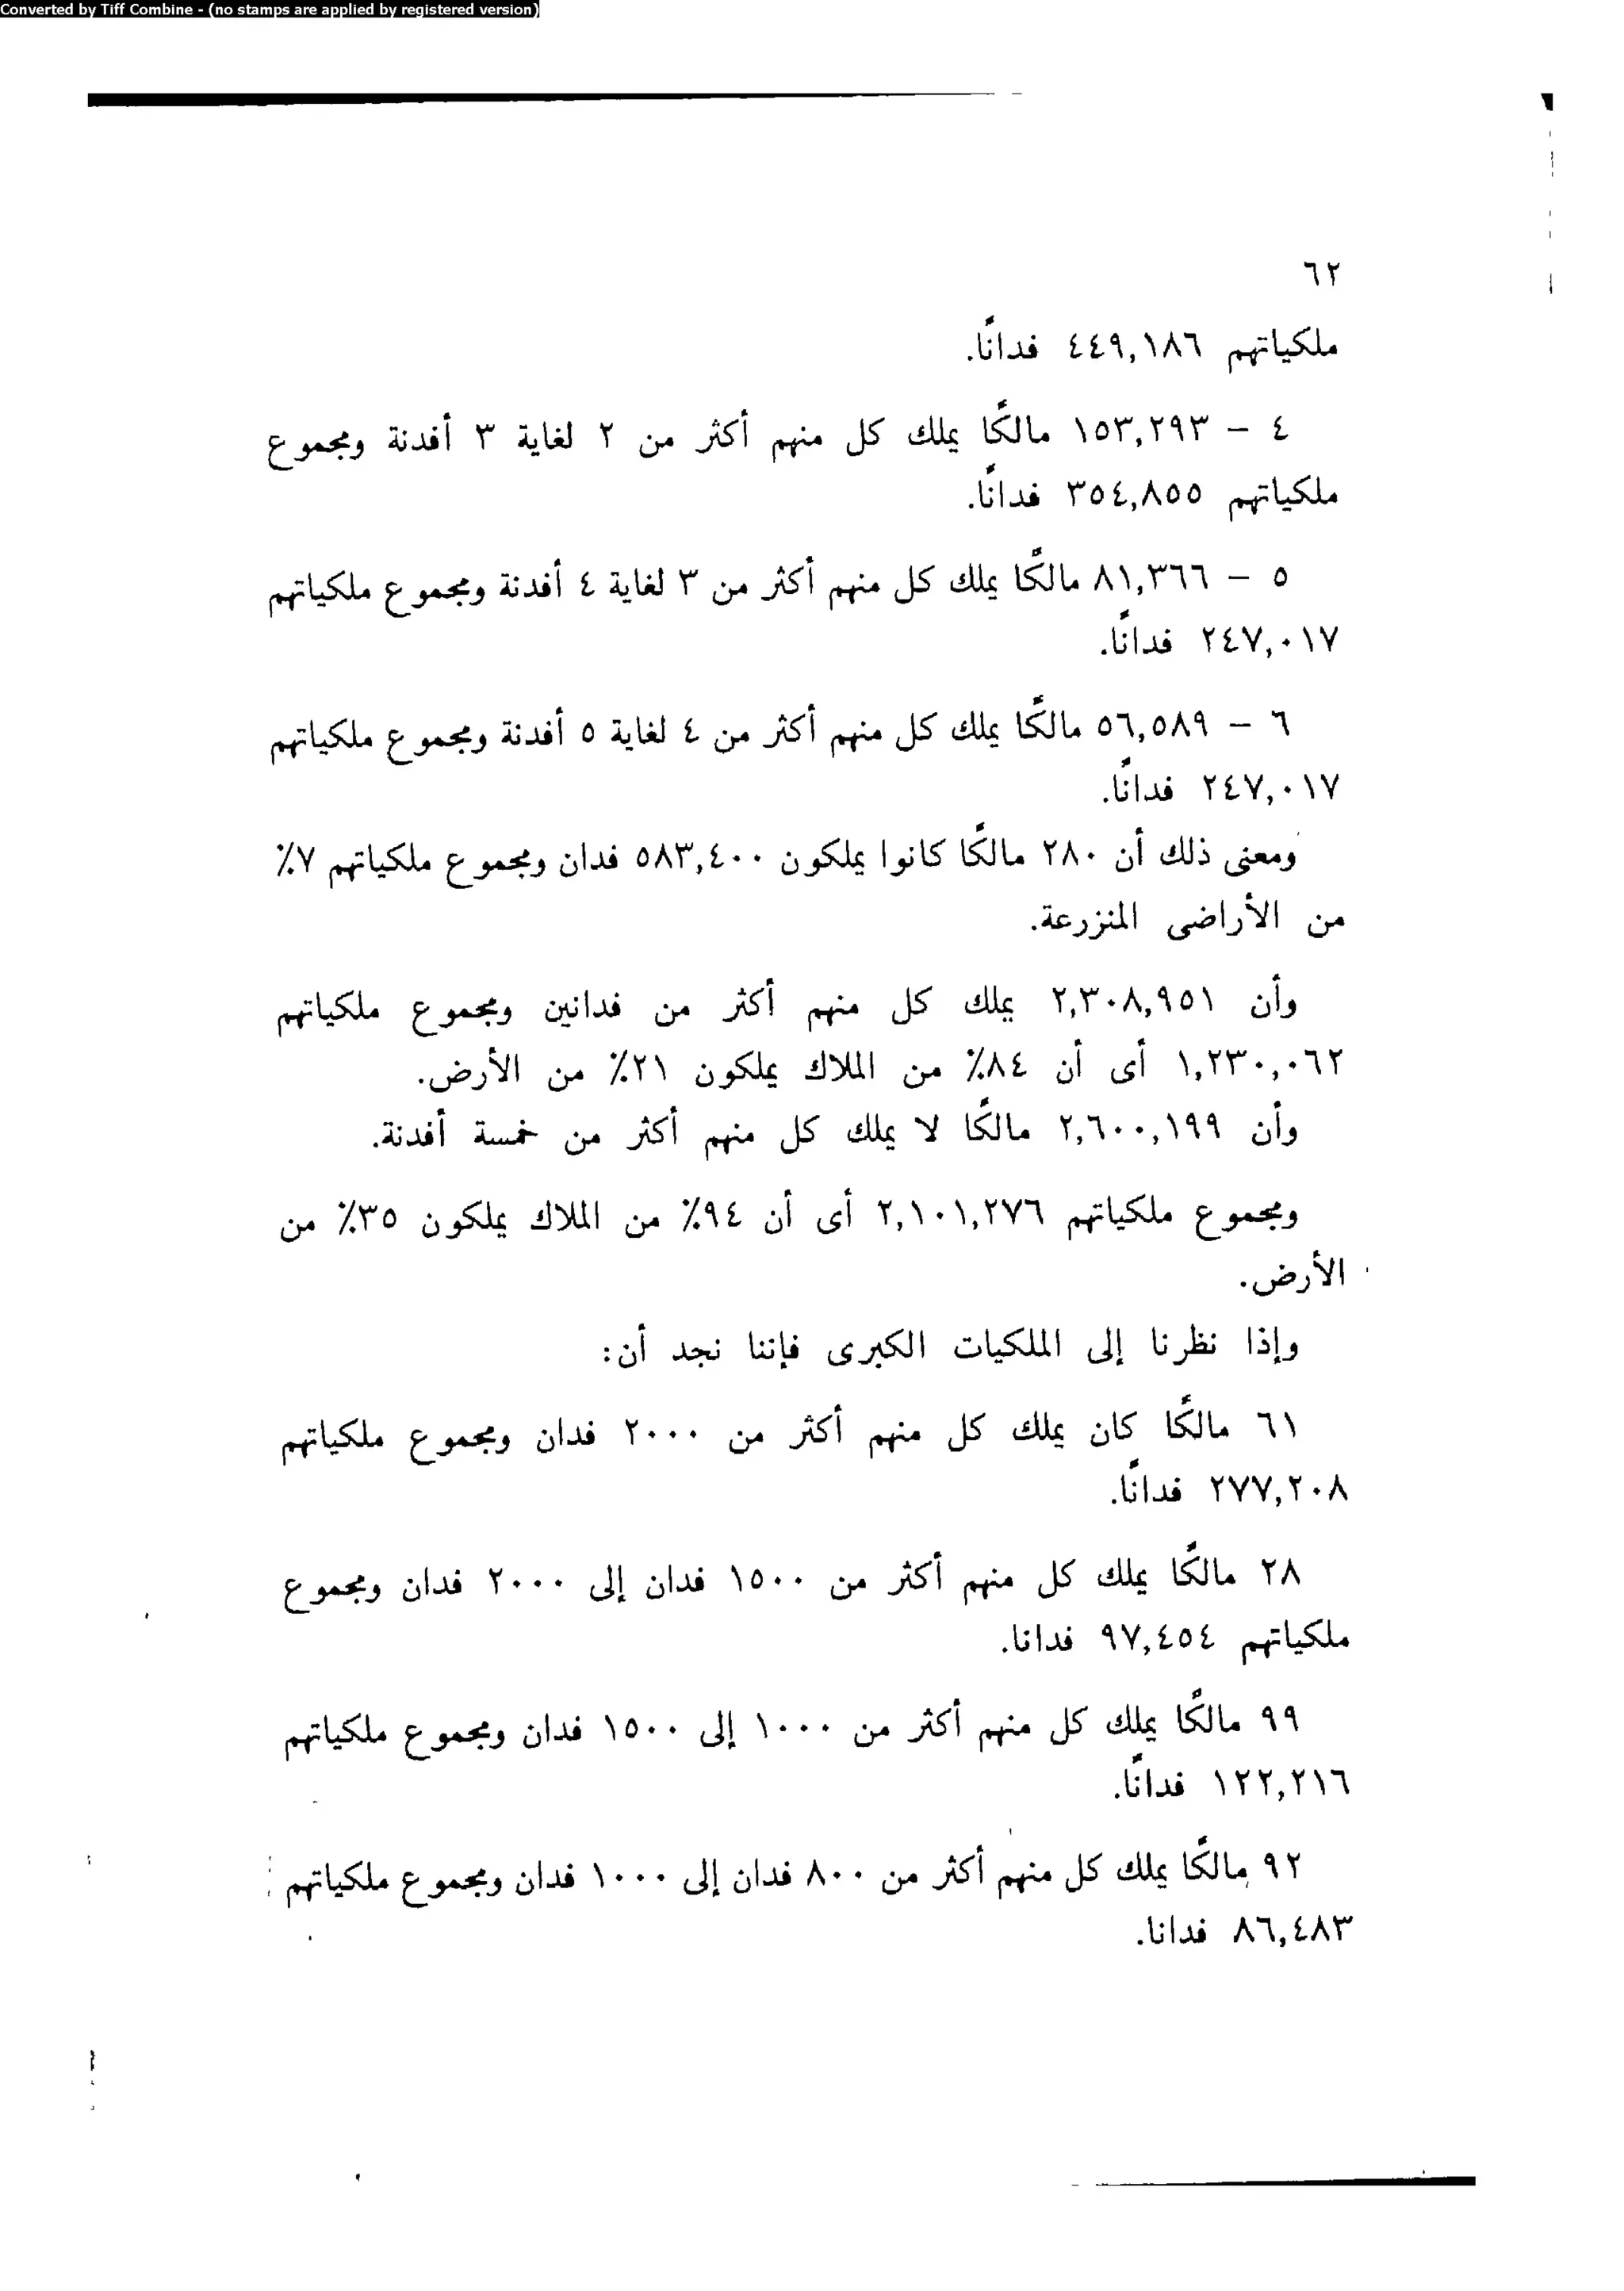 Converted by Tiff Combine - (no stamps are applied by registered version)
٦٢
ملكياتهم ٤٤٩,١٨٦ فدانًا.
٤ – ١٥٣,٢٩٣ مالكًا يملك كل منهم أكثر من ٢ لغاية ٣ أفدنة ومجموع
ملكياتهم ٣٥٤,٨٥٥ فدانًا.
٥ – ٨١,٣٦٦ مالكًا يملك كل منهم أكثر من ٣ لغاية ٤ أفدنة ومجموع ملكياتهم
٢٤٧,٠١٧ فدانًا.
٦ – ٥٦,٥٨٩ مالكًا يملك كل منهم أكثر من ٤ لغاية ٥ أفدنة ومجموع ملكياتهم
٢٤٧,٠١٧ فدانًا.
ومعنى ذلك أن ٢٨٠ مالكًا كانوا يملكون ٥٨٣,٤٠٠ فدان ومجموع ملكياتهم ٧٪
من الأراضى المنزرعة.
وأن ٢,٣٠٨,٩٥١ يملك كل منهم أكثر من فدانين ومجموع ملكياتهم
١,٢٣٠,٠٦٢ أى أن ٨٤٪ من الملاك يملكون ٢١٪ من الأرض.
وأن ٢,٦٠٠,١٩٩ مالكًا لا يملك كل منهم أكثر من خمسة أفدنة.
ومجموع ملكياتهم ٢,١٠١,٢٧٦ أى أن ٩٤٪ من الملاك يملكون ٣٥٪ من
الأرض.
وإذا نظرنا إلى الملكيات الكبرى فإننا نجد أن:
٦١ مالكًا كان يملك كل منهم أكثر من ٢٠٠٠ فدان ومجموع ملكياتهم
٢٧٧,٢٠٨ فدانًا.
٢٨ مالكًا يملك كل منهم أكثر من ١٥٠٠ فدان إلى ٢٠٠٠ فدان ومجموع
ملكياتهم ٩٧,٤٥٤ فدانا.
٩٩ مالكًا يملك كل منهم أكثر من ١٠٠٠ إلى ١٥٠٠ فدان ومجموع ملكياتهم
١٢٢,٢١٦ فدانًا.
٩٢ مالكًا يملك كل منهم أكثر من ٨٠٠ فدان إلى ١٠٠٠ فدان ومجموع ملكياتهم
٨٦,٤٨٣ فدانا.